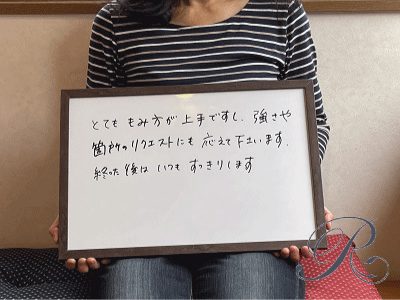 とても もみ方が 上手ですし、強さや
箇所のリクエストにも 応えて下さいます。
終った後は いつも すっきりします
R